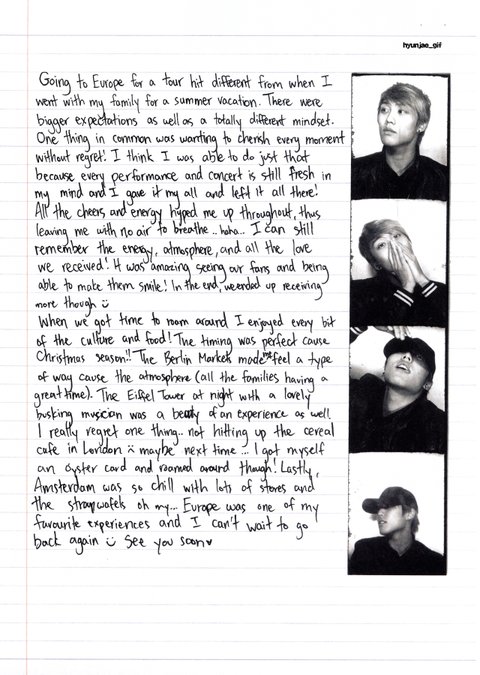 hyunjae_gif
Going to Europe for a tour hit different from when I
went with my family for a summer vacation. There were
bigger expectations as well as a totally different mindset.
One thing in common was wanting to cherish every moment
without regret! I think I was able to do just that
because every performance and concert is still fresh in
my mind and I gave it my all and left it all there!
All the cheers and energy hyped me up throughout, thus
leaving me with no air to breathe... haha... I can still
remember the energy, atmosphere, and all the love
we received! It was amazing seeing our fans and being
able to make them smile! In the end, we ended up receiving
more though :)
When we got time to roam around I enjoyed every bit
of the culture and food! The timing was perfect cause
Christmas season!! The Berlin Markets made me feel a type
of way cause the atmosphere (all the families having a
great time). The Eiffel Tower at night with a lovely
busking musician was a beauty of an experience as well.
I really regret one thing.. not hitting up the cereal
cafe in London :( maybe next time... I got myself
an oyster card and roamed around though! Lastly,
Amsterdam was so chill with lots of stores and
the stroopwafels oh my... Europe was one of my
favourite experiences and I can't wait to go
back again :) See you soon♥